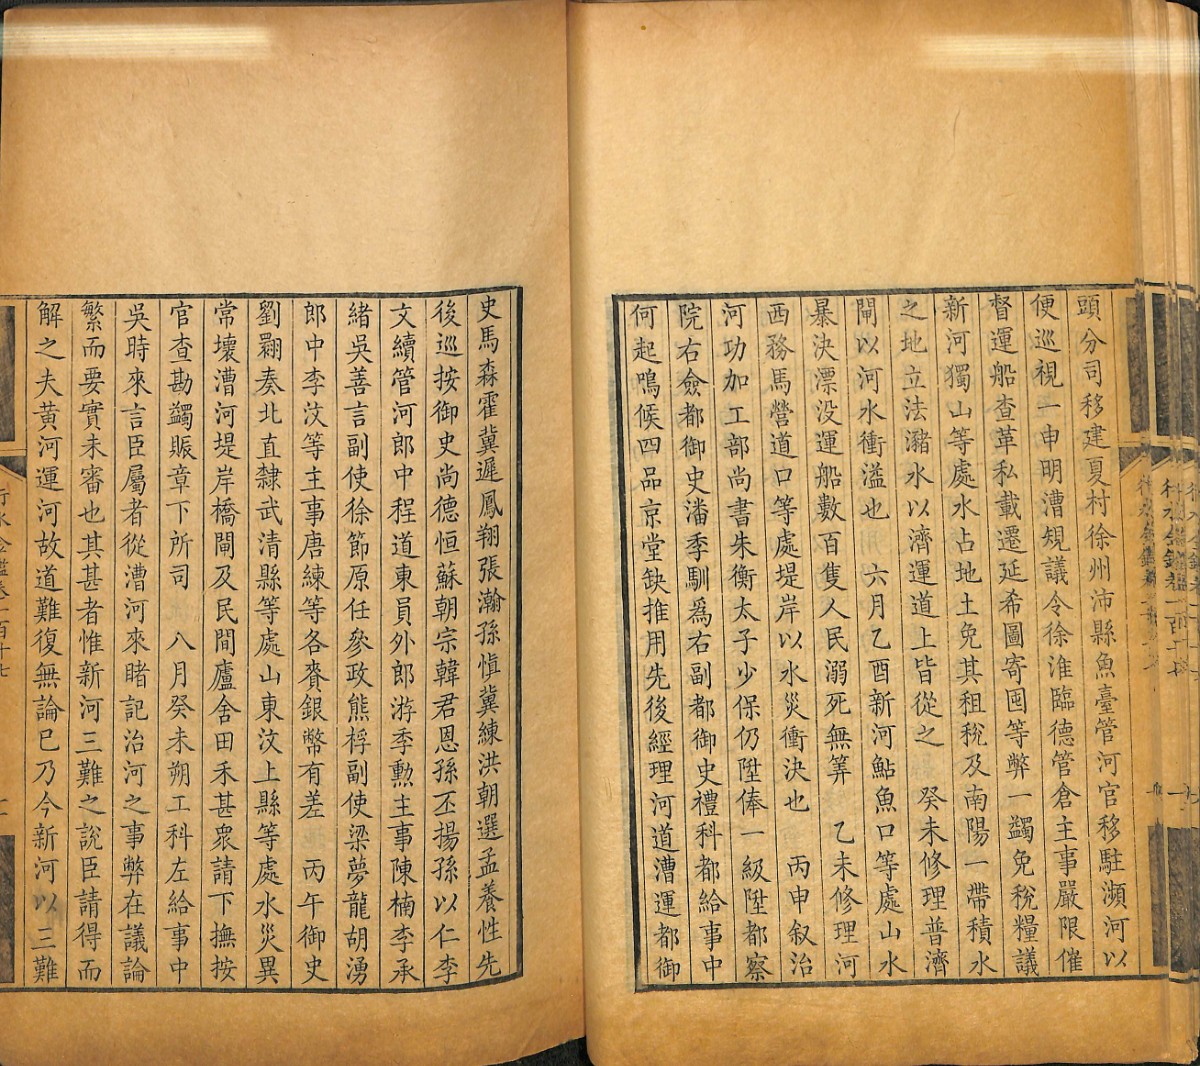 頭分司移建夏村徐州沛縣魚臺管河官移駐瀕河以
便巡視一申明漕規議令徐淮臨德管倉主事嚴限催
督運船查革私載遷延希圖寄囤等弊一蠲免稅糧議
新河獨山等處水占地土免其租稅及南陽一帶積水
之地立法瀦水以濟運道上皆從之　癸未修理普濟
閘以河水衝溢也　六月乙酉新河鮎魚口等處山水
暴決漂没運船數百隻人民溺死無筭　乙未修理河
西務馬營道口等處堤岸以水災衝決也　丙申叙治
河功加工部尚書朱衡太子少保仍陞俸一級陞都察
院右僉都御史潘季馴爲右副都御史禮科都給事中
何起鳴候四品京堂缺推用先後經理河道漕運都御
史馬森霍冀遲鳳翔張瀚孫愼冀練洪朝選孟養性先
後巡按御史尚德恒蘇朝宗韓君恩孫丕揚孫以仁李
文續管河郎中程道東員外郎游季勳主事陳楠李承
緒吳善言副使徐節原任參政熊桴副使梁夢龍胡湧
郎中李汶等主事唐練等各賚銀幣有差　丙午御史
劉翾奏北直隸武清縣等處山東汶上縣等處水災異
常壞漕河堤岸橋閘及民間廬舍田禾甚衆請下撫按
官查勘蠲賑章下所司　八月癸未朔工科左給事中
吳時來言臣屬者從漕河來睹記治河之事弊在議論
繁而要實未審也其甚者惟新河三難之說臣請得而
解之夫黃河運河故道難復無論巳乃今新河以三難
行水金鑑卷一百十七